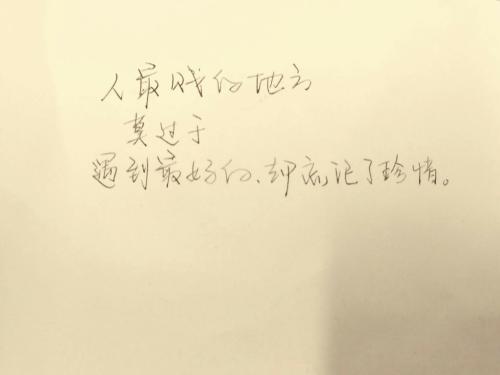 人最贱的地方
莫过于
遇到最好的、却忘记了珍惜。